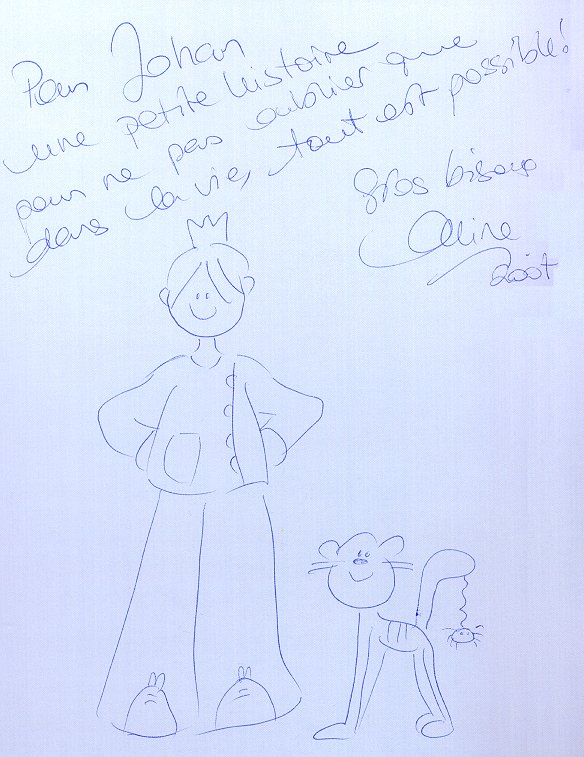 Pour Johan
une petite histoire
pour ne pas oublier que
dans la vie, tout est possible!
Gros bisous
Aline